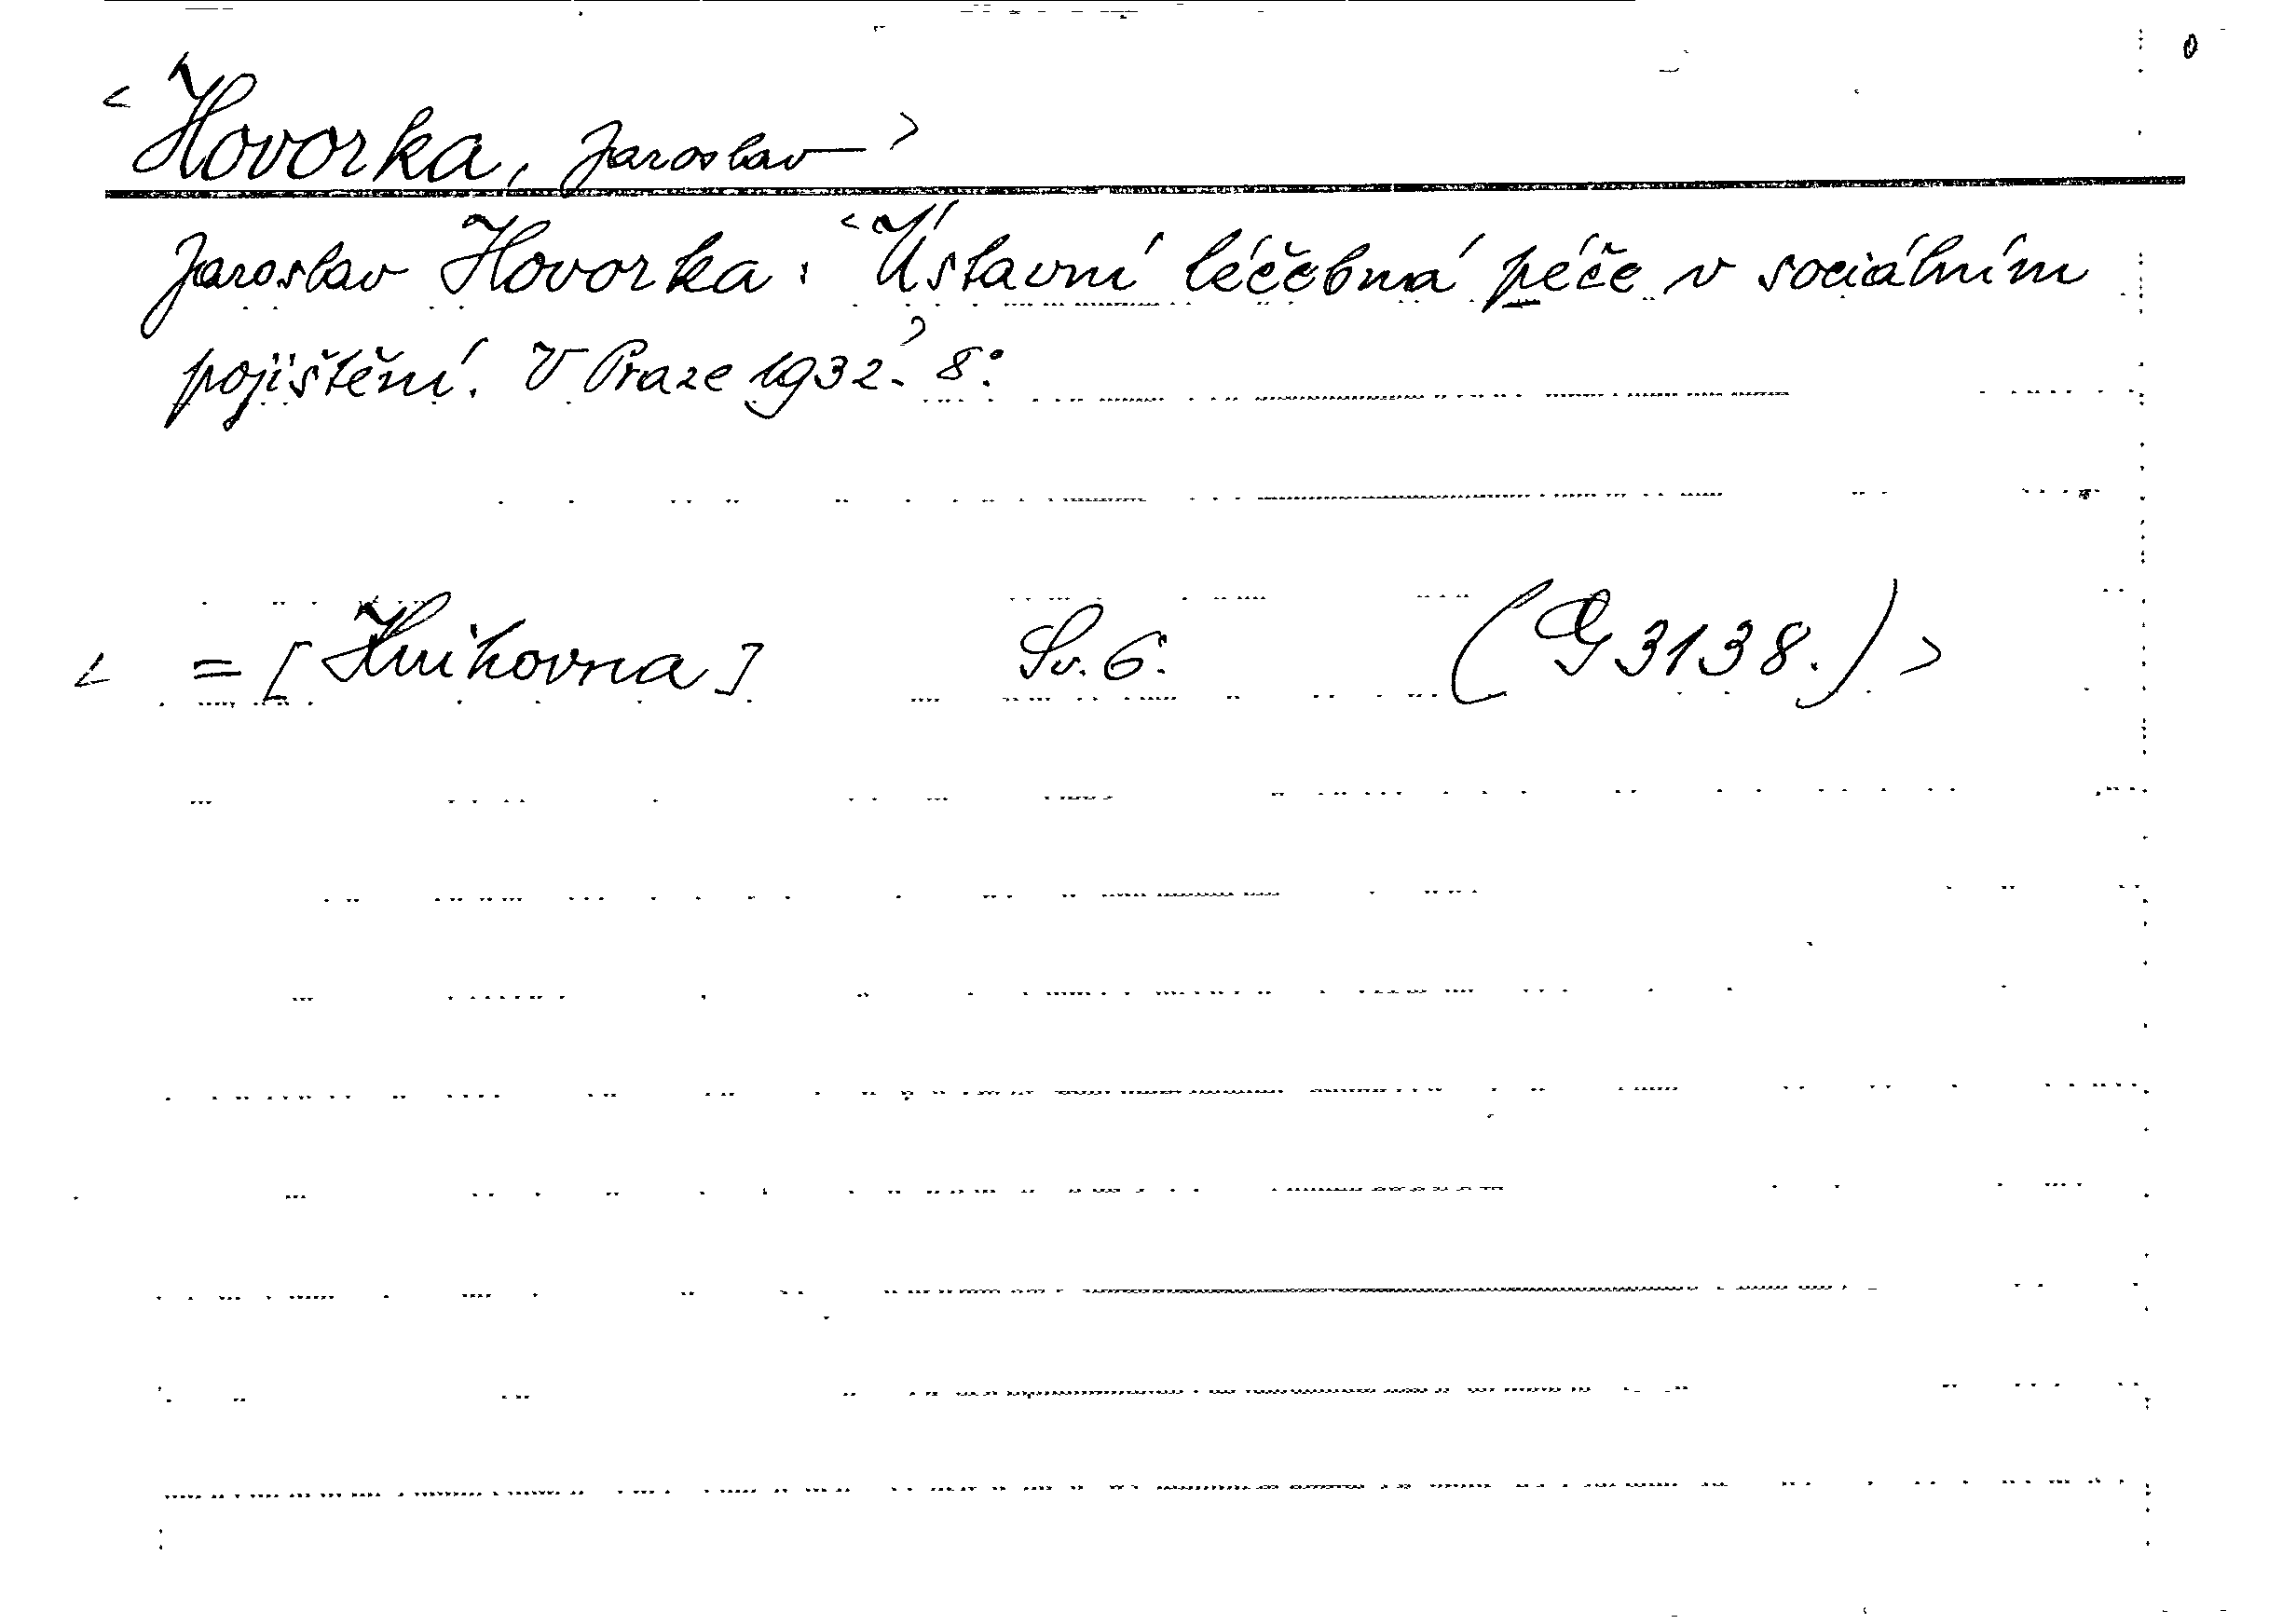 <Hovorka, Jaroslav>
Jaroslav Hovorka: <Ústavní léčebná péče v sociálním
pojištění. V Praze 1932.> 8°.
< = [Knihovna] Sv. 6. (G 3138.) >